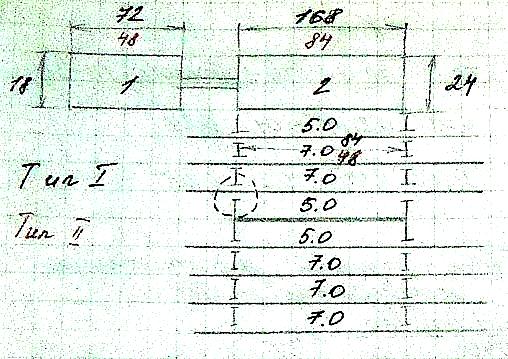 72 168
48 84
18 1 2 24
5.0
84
7.0
48
Тип I 7.0
5.0
Тип II 5.0
7.0
7.0
7.0